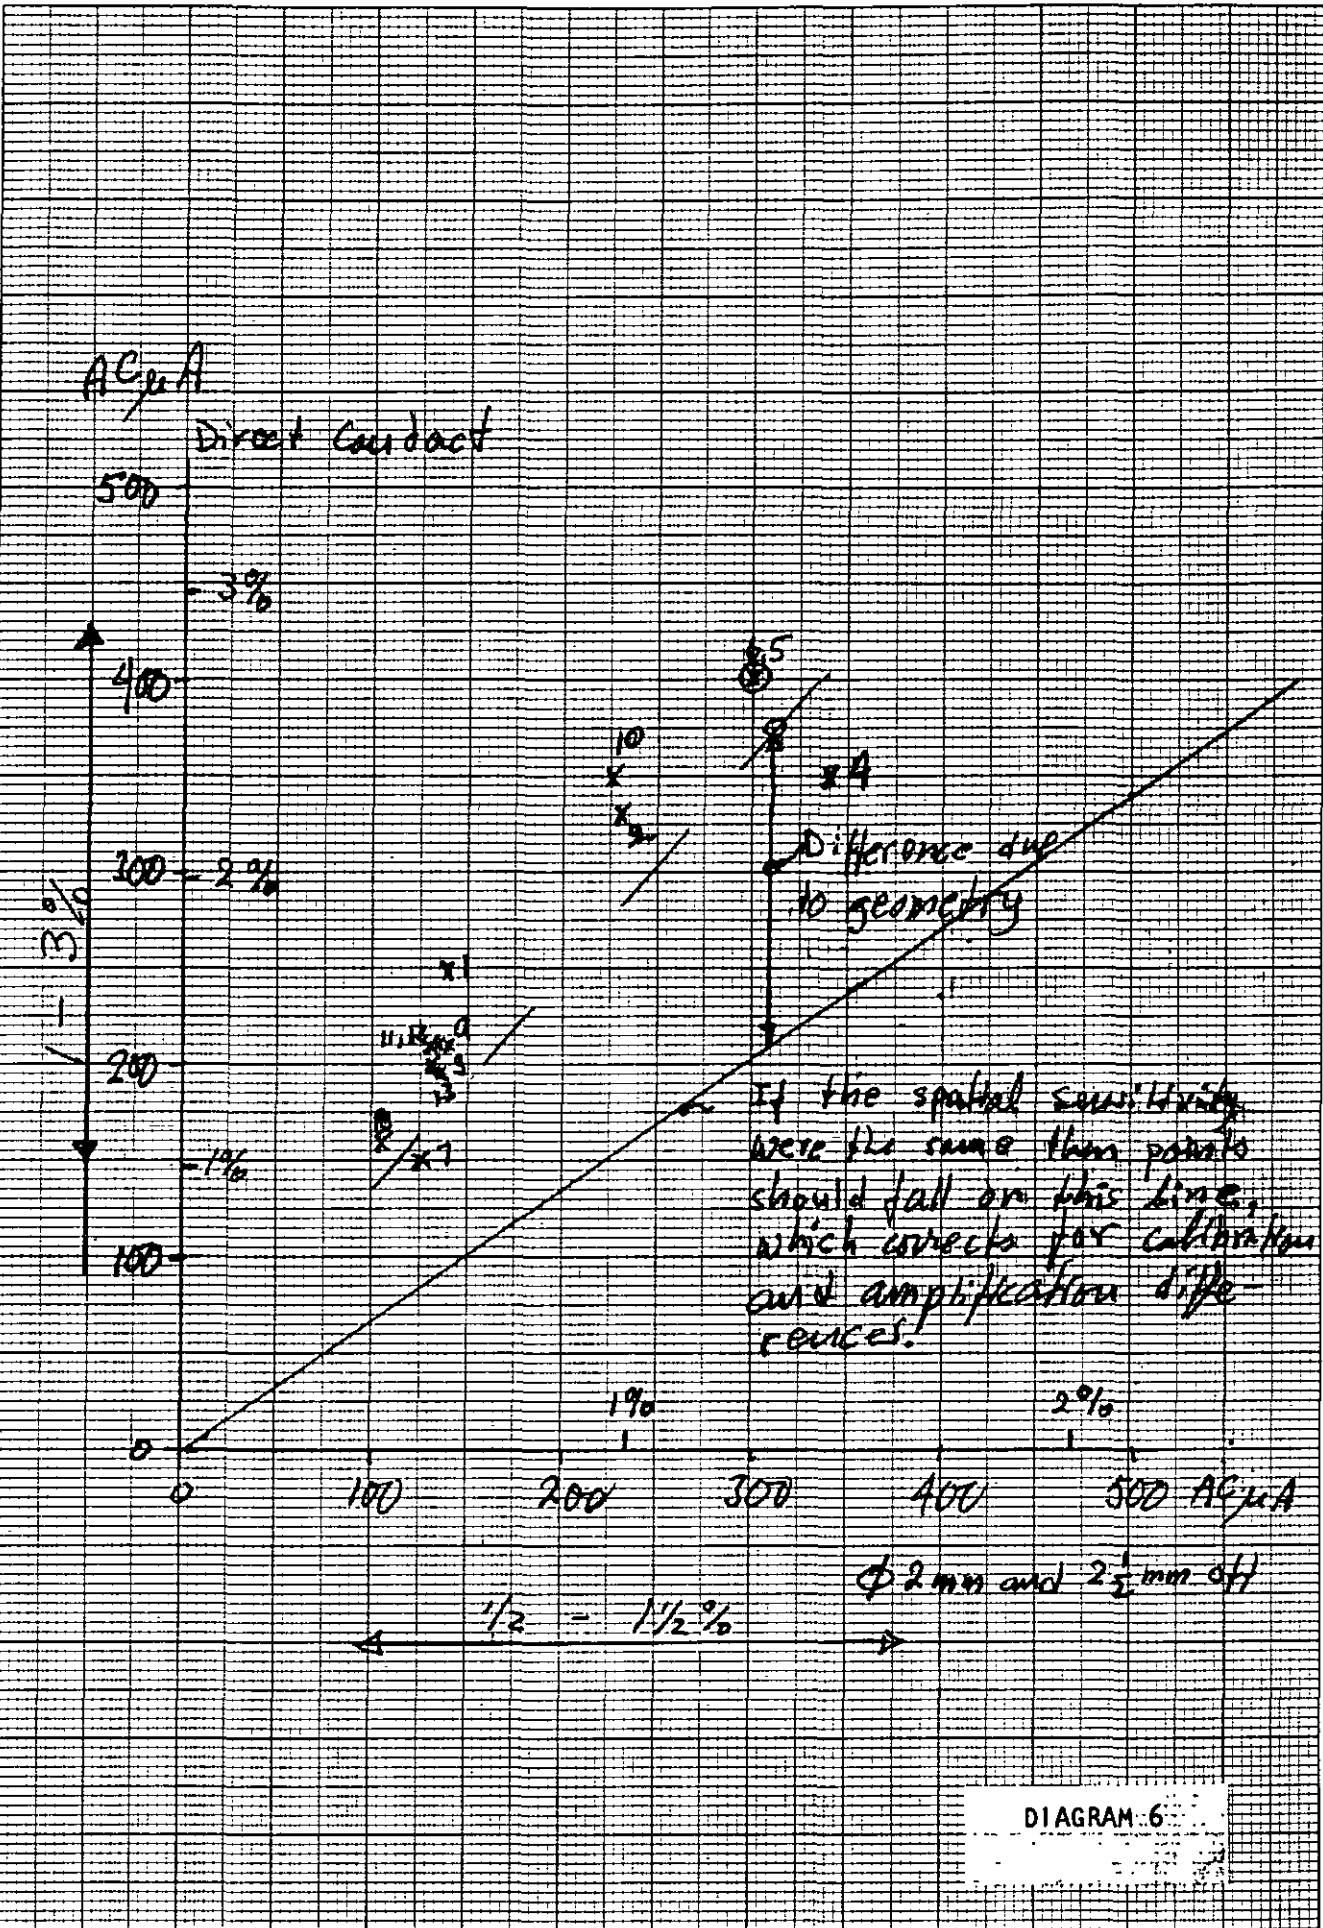 AC µA
Direct Contact
500
3%
400
300
2%
1 - 3%
200
1%
100
0
8,5
10
x
x 4
x 9
Difference due
to geometry
x 1
11,12
9
3
13
x 7
If the spatial sensitivity
were the same then points
should fall on this line,
which corrects for calibration
and amplification diffe-
rences.
1%
2%
0
100
200
300
400
500 AC µA
Φ 2 mm and 2 1/2 mm off
1/2 - 1 1/2 %
DIAGRAM 6